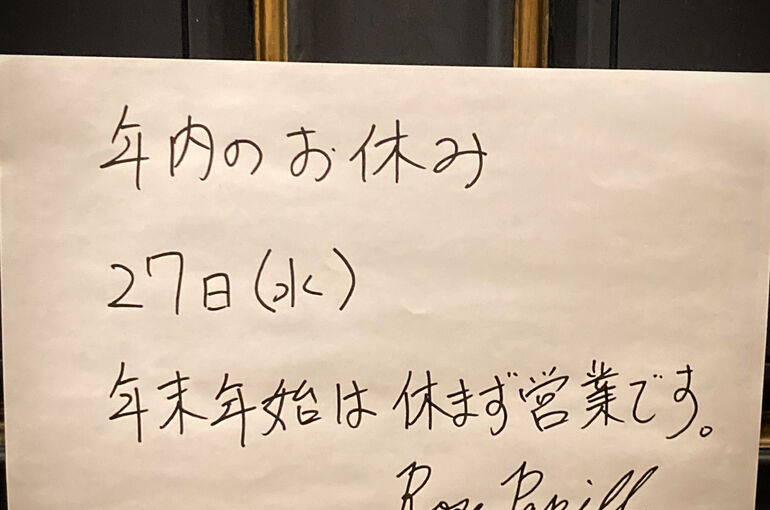 年内のお休み
27日(水)
年末年始は休まず営業です。